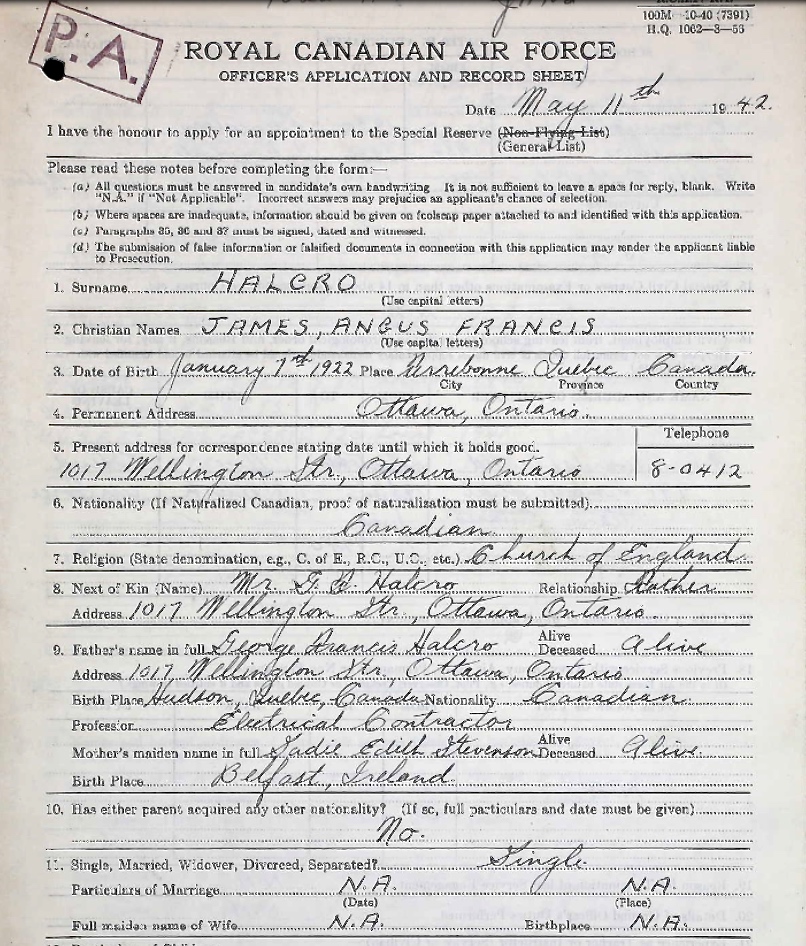 100M-10-40 (7391)
H.Q. 1062-3-53
P.A.
ROYAL CANADIAN AIR FORCE
OFFICER'S APPLICATION AND RECORD SHEET
Date May 11th 1942.
I have the honour to apply for an appointment to the Special Reserve (Non-Flying List)
(General List)
Please read these notes before completing the form:—
(a) All questions must be answered in candidate's own handwriting It is not sufficient to leave a space for reply, blank. Write
"N.A." if "Not Applicable". Incorrect answers may prejudice an applicant's chance of selection.
(b) Where spaces are inadequate, information should be given on foolscap paper attached to and identified with this application.
(c) Paragraphs 35, 36 and 37 must be signed, dated and witnessed.
(d) The submission of false information or falsified documents in connection with this application may render the applicant liable
to Prosecution.
1. Surname HALCRO
(Use capital letters)
2. Christian Names JAMES, ANGUS FRANCIS
(Use capital letters)
3. Date of Birth January 1922 Place Quebec Canada.
City Province Country
4. Permanent Address Ottawa, Ontario.
5. Present address for correspondence stating date until which it holds good.
Telephone
1017 Wellington Str., Ottawa, Ontario 8-0412
6. Nationality (If Naturalized Canadian, proof of naturalization must be submitted)
Canadian
7. Religion (State denomination, e.g., C. of E., R.C., U.C., etc.) Church of England
8. Next of Kin (Name) Mr. Halcro Relationship Father
Address 1017 Wellington Str., Ottawa, Ontario.
9. Father's name in full George Francis Halcro Alive Deceased Alive
Address 1017, Wellington Str., Ottawa, Ontario
Birth Place Hudson, Quebec, Canada Nationality Canadian
Profession Electrical Contractor
Mother's maiden name in full Sadie Edith Stevenson Alive Deceased Alive.
Birth Place Belfast, Ireland.
10. Has either parent acquired any other nationality? (If so, full particulars and date must be given)
No.
11. Single, Married, Widower, Divorced, Separated? Single
Particulars of Marriage N.A. N.A.
(Date) (Place)
Full maiden name of Wife N.A. Birthplace N.A.